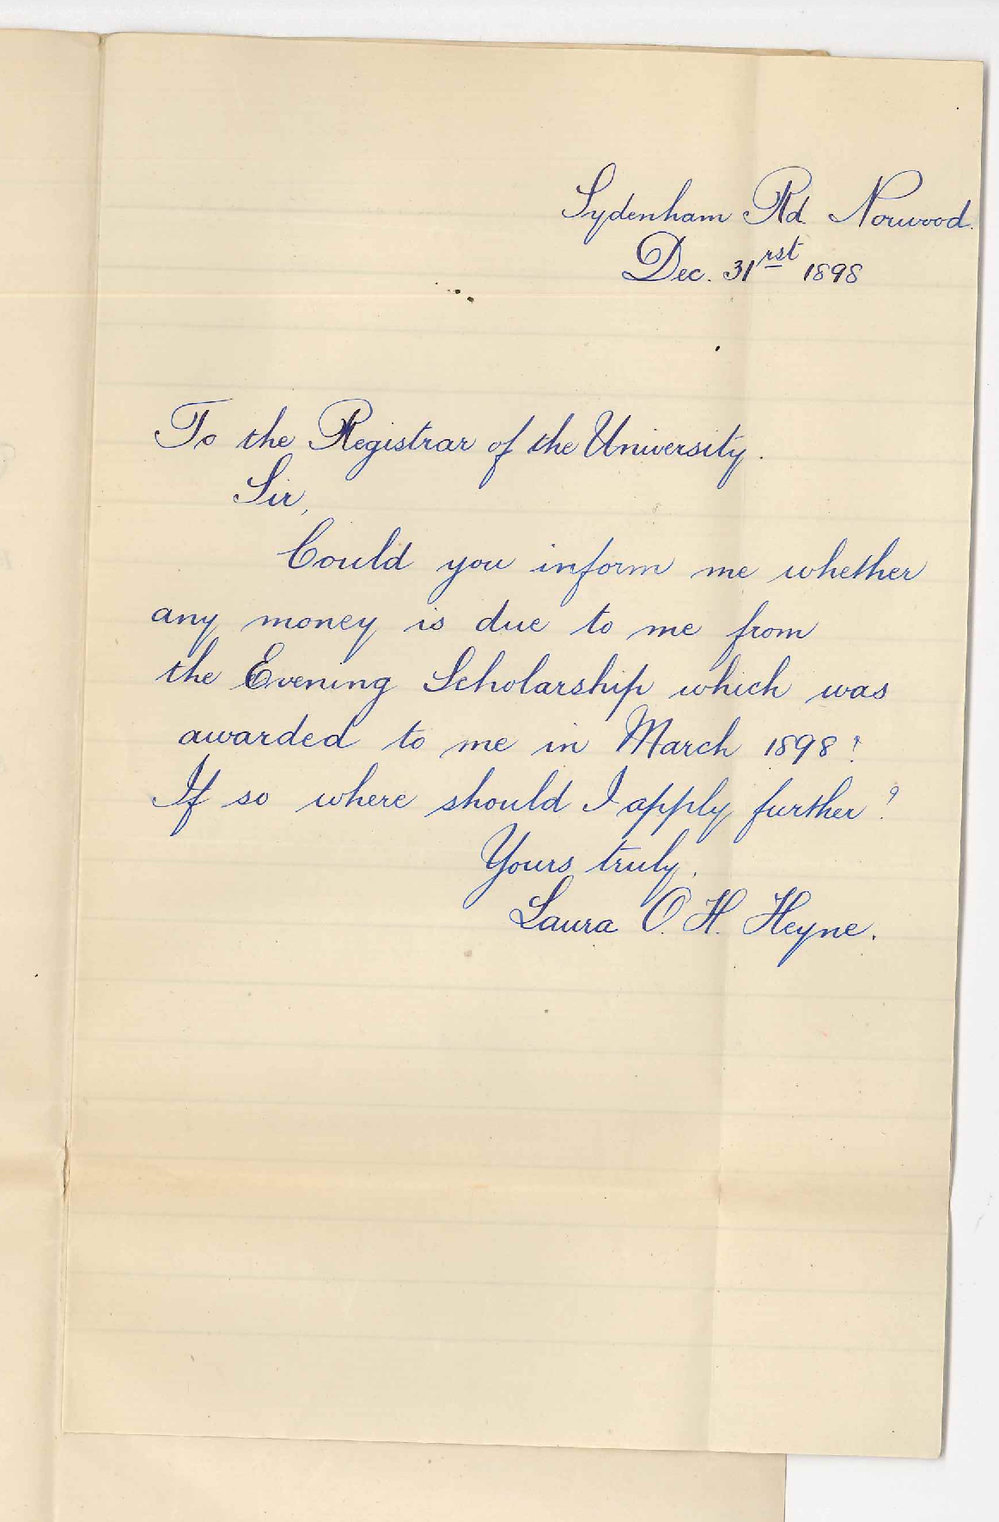 Sydenham Rd. Norwood.
Dec. 31rst 1898
To the Registrar of the University.
Sir,
Could you inform me whether
any money is due to me from
the Evening Scholarship which was
awarded to me in March 1898?
If so where should I apply further?
Yours truly.
Laura O. H. Heyne.